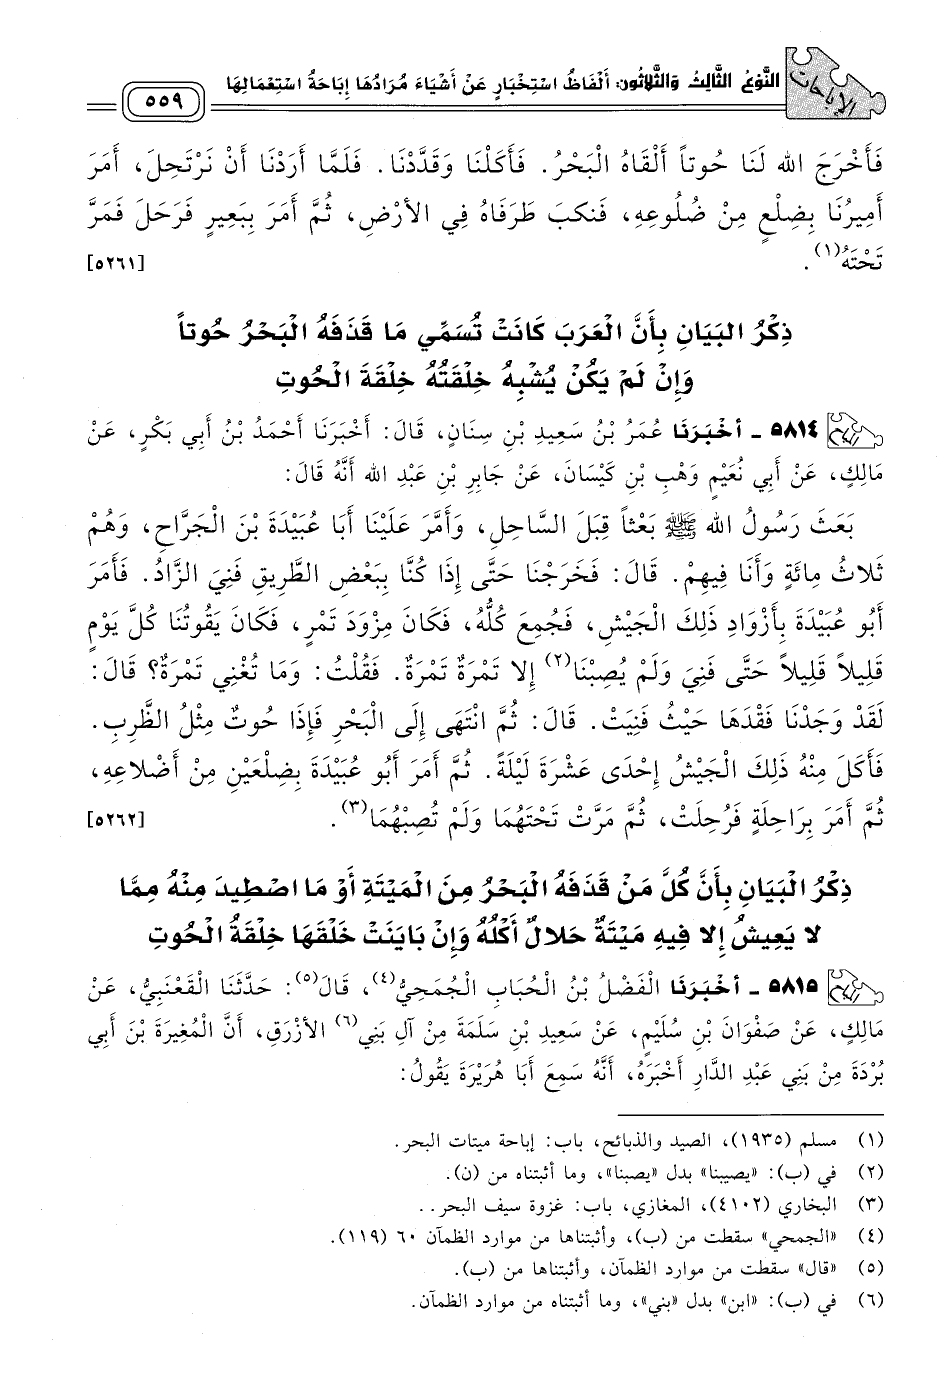 الإباحات
النَّوْعُ الثَّالِثُ وَالثَّلاثُون: أَلْفَاظُ اسْتِخْبَارٍ عَنْ أَشْيَاءَ مُرَادُهَا إِبَاحَةُ اسْتِعْمَالِهَا
٥٥٩
فَأَخْرَجَ الله لَنَا حُوتاً أَلْقَاهُ الْبَحْرُ. فَأَكَلْنَا وَقَدَّدْنَا. فَلَمَّا أَرَدْنَا أَنْ نَرْتَحِلَ، أَمَرَ
أَمِيرُنَا بِضِلْعٍ مِنْ ضُلُوعِهِ، فَنكبَ طَرَفَاهُ فِي الأرْضِ، ثُمَّ أَمَرَ بِبَعِيرٍ فَرَحَلَ فَمَرَّ
تَحْتَهُ(١). [٥٢٦١]
ذِكْرُ البَيَانِ بِأَنَّ الْعَرَبَ كَانَتْ تُسَمِّي مَا قَذَفَهُ الْبَحْرُ حُوتاً
وَإِنْ لَمْ يَكُنْ يُشْبِهُ خِلْقَتُهُ خِلْقَةَ الْحُوتِ
٥٨١٤ - أخْبَرَنَا عُمَرُ بْنُ سَعِيدِ بْنِ سِنَانٍ، قَالَ: أَخْبَرَنَا أَحْمَدُ بْنُ أَبِي بَكْرٍ، عَنْ
مَالِكٍ، عَنْ أَبِي نُعَيْمٍ وَهْبِ بْنِ كَيْسَانَ، عَنْ جَابِرِ بْنِ عَبْدِ الله أَنَّهُ قَالَ:
بَعَثَ رَسُولُ الله ﷺ بَعْثاً قِبَلَ السَّاحِلِ، وَأَمَّرَ عَلَيْنَا أَبَا عُبَيْدَةَ بْنَ الْجَرَّاحِ، وَهُمْ
ثَلاثُ مِائَةٍ وَأَنَا فِيهِمْ. قَالَ: فَخَرَجْنَا حَتَّى إِذَا كُنَّا بِبَعْضِ الطَّرِيقِ فَنِيَ الزَّادُ. فَأَمَرَ
أَبُو عُبَيْدَةَ بِأَزْوَادِ ذَلِكَ الْجَيْشِ، فَجُمِعَ كُلُّهُ، فَكَانَ مِزْوَدَ تَمْرٍ، فَكَانَ يَقُوتُنَا كُلَّ يَوْمٍ
قَلِيلاً قَلِيلاً حَتَّى فَنِيَ وَلَمْ يُصِبْنَا(٢) إِلا تَمْرَةٌ تَمْرَةٌ. فَقُلْتُ: وَمَا تُغْنِي تَمْرَةٌ؟ قَالَ:
لَقَدْ وَجَدْنَا فَقْدَهَا حَيْثُ فَنِيَتْ. قَالَ: ثُمَّ انْتَهَى إِلَى الْبَحْرِ فَإِذَا حُوتٌ مِثْلُ الظَّرِبِ.
فَأَكَلَ مِنْهُ ذَلِكَ الْجَيْشُ إِحْدَى عَشْرَةَ لَيْلَةً. ثُمَّ أَمَرَ أَبُو عُبَيْدَةَ بِضِلْعَيْنِ مِنْ أَضْلاعِهِ،
ثُمَّ أَمَرَ بِرَاحِلَةٍ فَرُحِلَتْ، ثُمَّ مَرَّتْ تَحْتَهُمَا وَلَمْ تُصِبْهُمَا(٣). [٥٢٦٢]
ذِكْرُ الْبَيَانِ بِأَنَّ كُلَّ مَنْ قَذَفَهُ الْبَحْرُ مِنَ الْمَيْتَةِ أَوْ مَا اصْطِيدَ مِنْهُ مِمَّا
لا يَعِيشُ إِلا فِيهِ مَيْتَةٌ حَلالٌ أَكْلُهُ وَإِنْ بَايَنَتْ خَلْقَهَا خِلْقَةُ الْحُوتِ
٥٨١٥ - أخْبَرَنَا الْفَضْلُ بْنُ الْحُبَابِ الْجُمَحِيُّ(٤)، قَالَ(٥): حَدَّثَنَا الْقَعْنَبِيُّ، عَنْ
مَالِكٍ، عَنْ صَفْوَانَ بْنِ سُلَيْمٍ، عَنْ سَعِيدِ بْنِ سَلَمَةَ مِنْ آلِ بَنِي(٦) الأزْرَقِ، أَنَّ الْمُغِيرَةَ بْنَ أَبِي
بُرْدَةَ مِنْ بَنِي عَبْدِ الدَّارِ أَخْبَرَهُ، أَنَّهُ سَمِعَ أَبَا هُرَيْرَةَ يَقُولُ:
(١) مسلم (١٩٣٥)، الصيد والذبائح، باب: إباحة ميتات البحر.
(٢) في (ب): «يصيبنا» بدل «يصبنا»، وما أثبتناه من (ن).
(٣) البخاري (٤١٠٢)، المغازي، باب: غزوة سيف البحر..
(٤) «الجمحي» سقطت من (ب)، وأثبتناها من موارد الظمآن ٦٠ (١١٩).
(٥) «قال» سقطت من موارد الظمآن، وأثبتناها من (ب).
(٦) في (ب): «ابن» بدل «بني»، وما أثبتناه من موارد الظمآن.